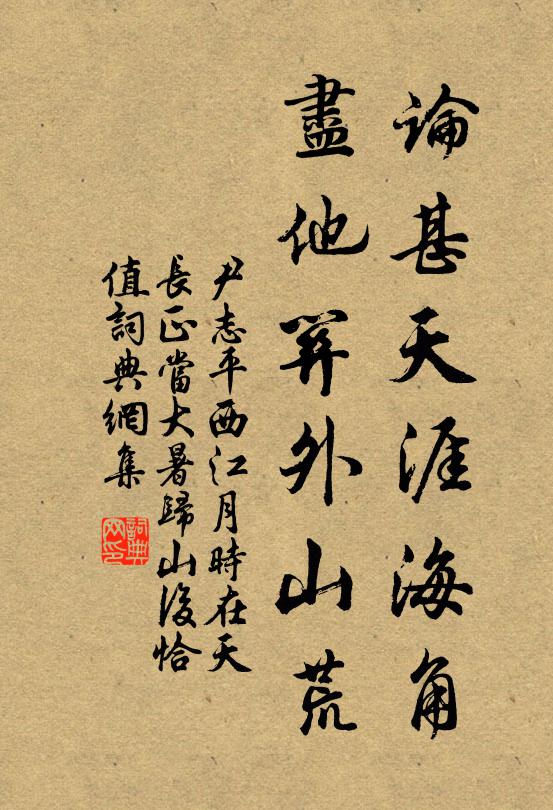 論甚天涯海角
盡他羿外山荒
尹志平西江月時在天
長正當大暑歸山後恰
值詞典網集
詞典网印